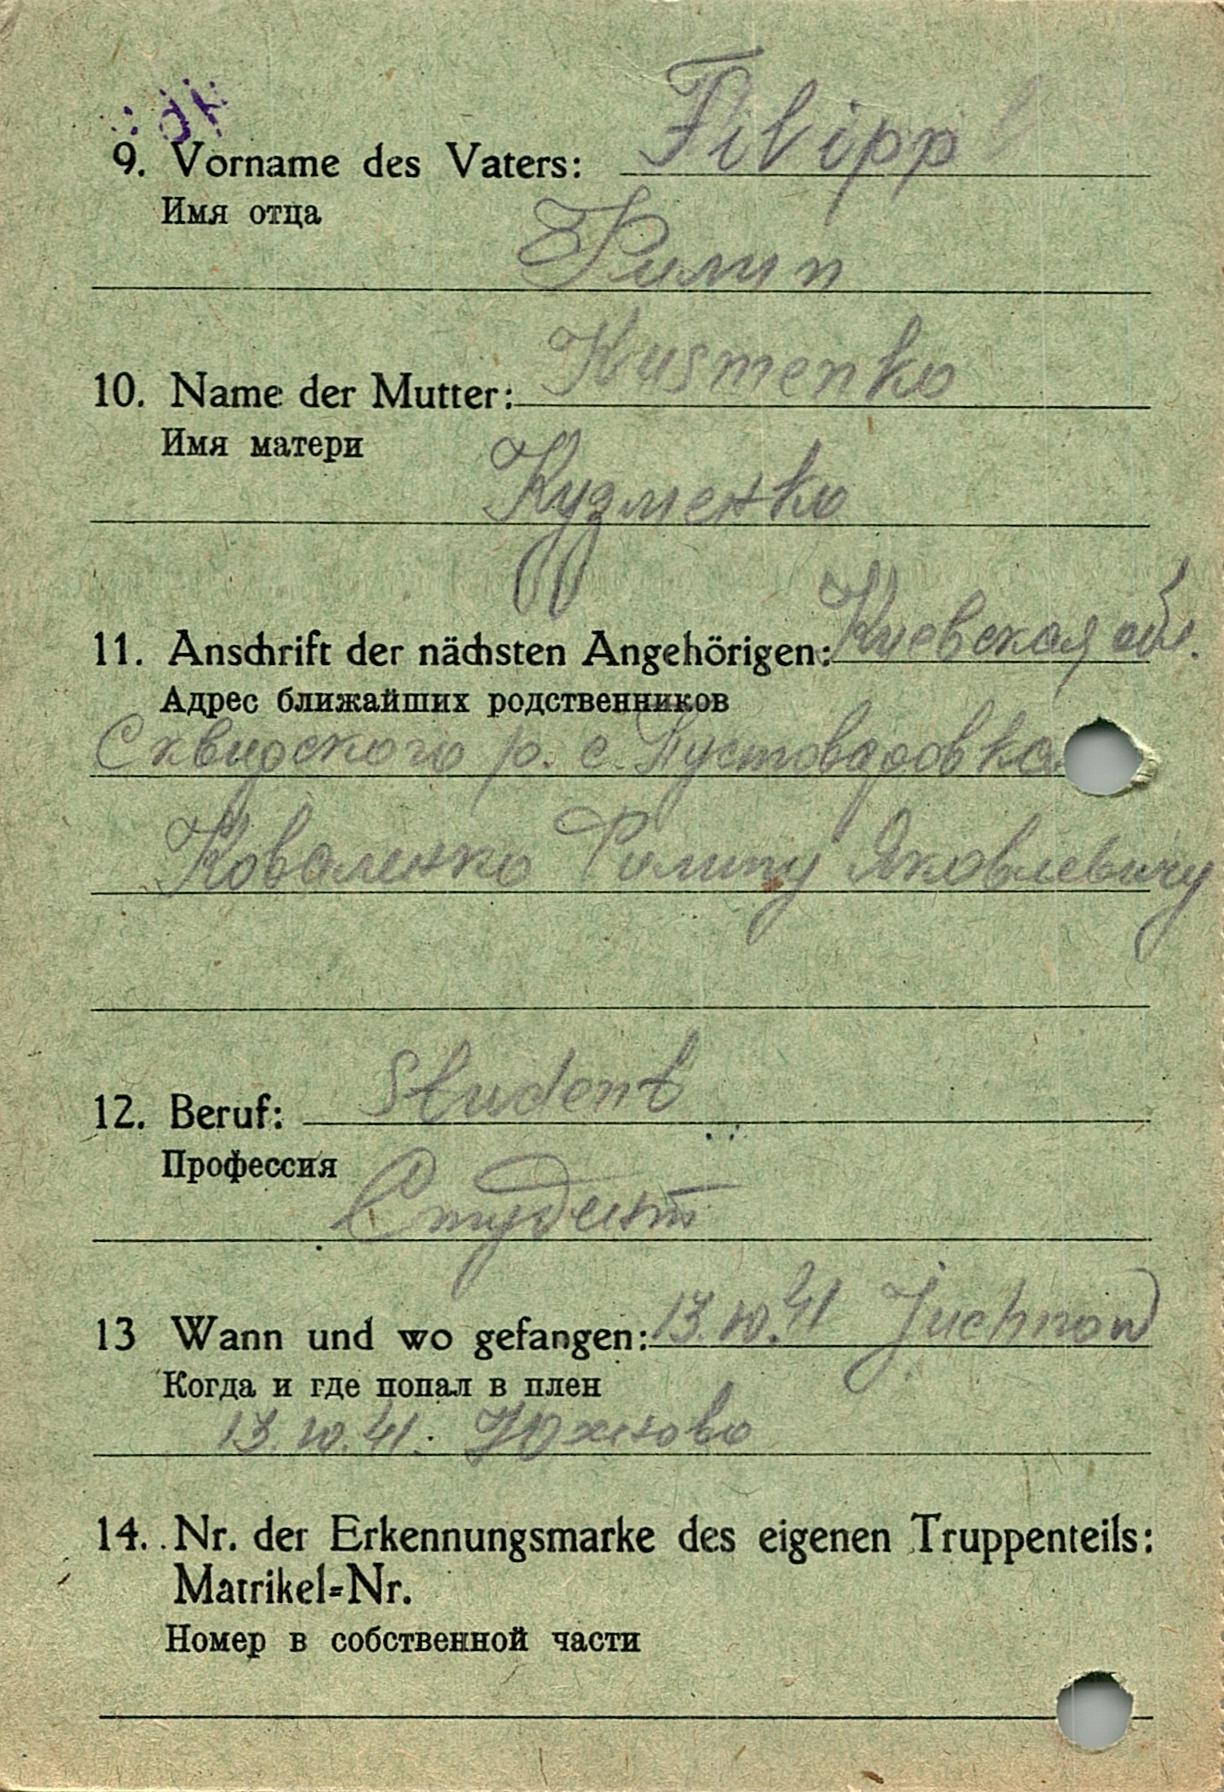 9. Vorname des Vaters: Filipp
Имя отца
Филип
10. Name der Mutter: Kusmenko
Имя матери
Кузменко
11. Anschrift der nächsten Angehörigen: Киевская обл.
Адрес ближайших родственников
Сквирского р. с. Пустоваровка
Коваленко Филипу Яковлевичу
12. Beruf: Student
Профессия
Студент
13 Wann und wo gefangen: 13.10.41 Juchnow
Когда и где попал в плен
13.10.41. Юхново
14. Nr. der Erkennungsmarke des eigenen Truppenteils:
Matrikel=Nr.
Номер в собственной части